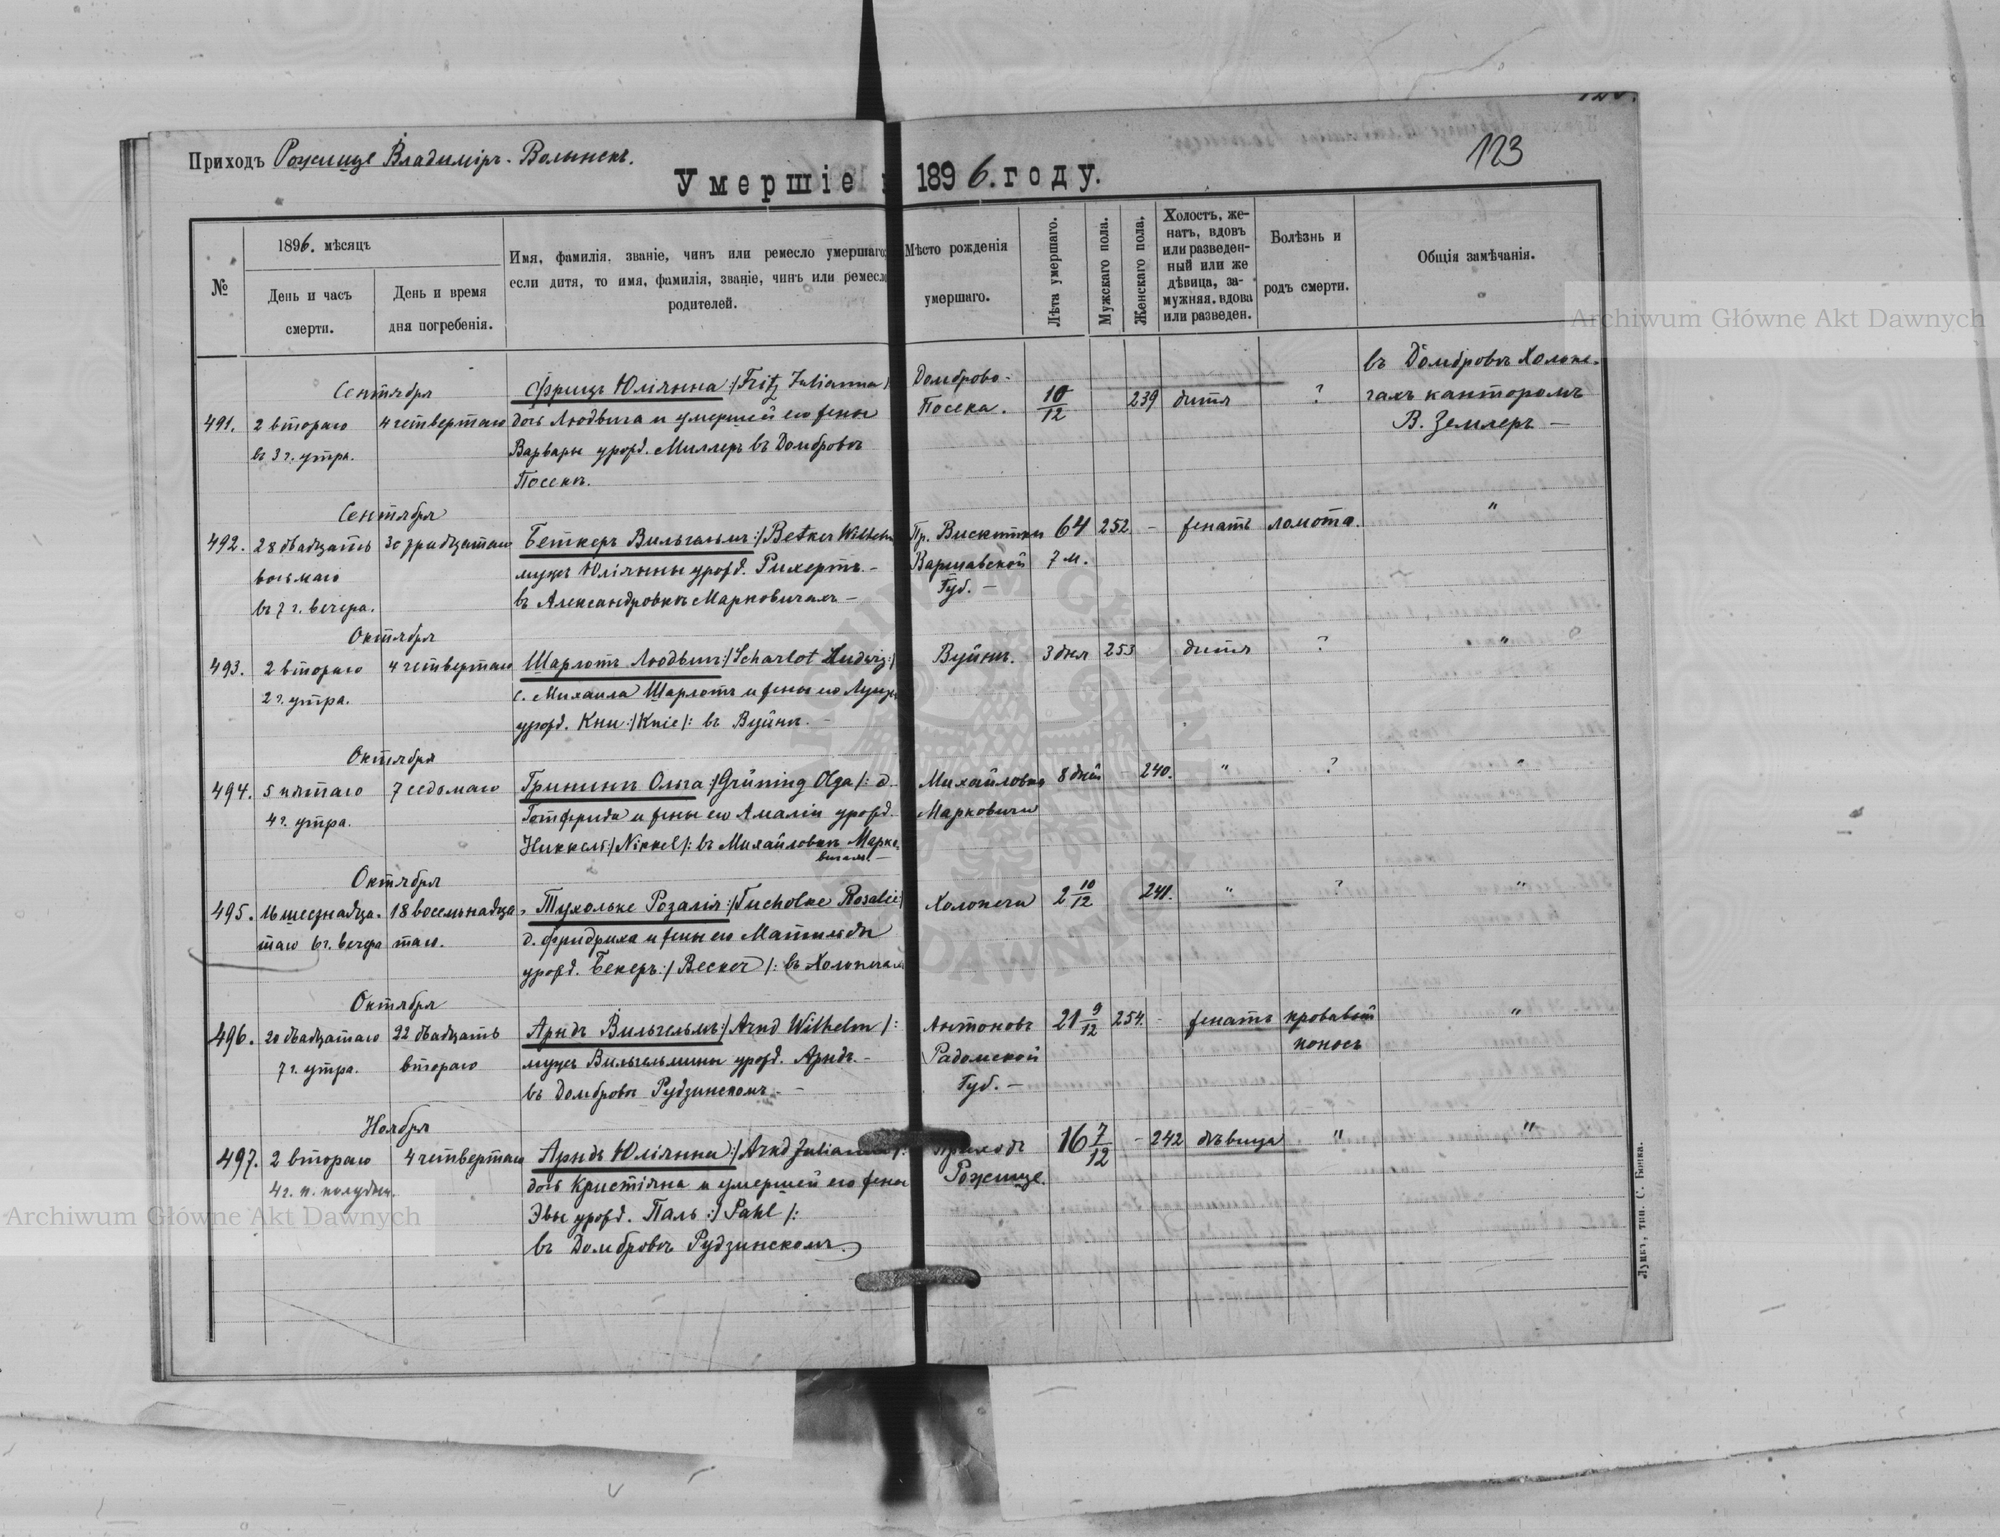 Приходъ Рожище Владиміръ-Волынскъ.
123
Умершіе в 1896. году.
№
1896. мѣсяцъ
День и часъ
смерти.
День и время
дня погребенія.
Имя, фамилія, званіе, чинъ или ремесло умершаго,
если дитя, то имя, фамилія, званіе, чинъ или ремесло
родителей.
Мѣсто рожденія
умершаго.
Лѣта умершаго.
Мужскаго пола.
Женскаго пола.
Холостъ, же-
натъ, вдовъ
или разведен-
ный или же
дѣвица, за-
мужняя, вдова
или разведен.
Болѣзнь и
родъ смерти.
Общія замѣчанія.
Archiwum Główne Akt Dawnych
Сентября
491. 2 втораго
въ 3 ч. утра.
4 четвертаго
Фрицъ Юліянна :/Fritz Julianna/:
дочь Людвига и умершей его жены
Варвары урожд. Миллеръ въ Домбровѣ
Посекѣ.
Домброво-
Посека.
10/12
239
дитя
?
въ Домбровѣ Холопе-
чахъ канторомъ
В. Землеръ —
Сентября
492. 28 двадцать
восьмаго
въ 7 ч. вечера.
30 тридцатаго
Беткеръ Вильгельмъ :/Betker Wilhelm
мужъ Юліянны урожд. Рихертъ. -
въ Александровкѣ Марковичахъ —
Пр. Вискитки
Варшавской
Губ. —
64
7 м.
252
-
женатъ
ломота.
"
Октября
493. 2 втораго
2 ч. утра.
4 четвертаго
Шарлотъ Людвигъ :/Scharlot Ludwig:/
с. Михаила Шарлотъ и жены его Луизы
урожд. Кни :/Knie/: въ Вуйнѣ. -
Вуйнѣ.
3 дня
253
дитя
?
"
Октября
494. 5 пятаго
4 ч. утра.
7 седьмаго
Грининъ Ольга :/Grüning Olga/: д.
Готфрида и жены его Амаліи урожд.
Никкель :/Nikkel/: въ Михайловкѣ Марко-
вичахъ —
Михайловка
Марковичи
8 дней
-
240.
"
?
"
Октября
495. 16 шестнадца-
таго вечера
18 восемьнадца-
таго.
Тухольке Розалія :/Tucholke Rosalie/
д. Фридриха и жены его Матильды
урожд. Бекеръ :/Becker/: въ Холопечахъ
Холопечи
2 10/12
241.
"
?
"
Октября
496. 20 двадцатаго
7 ч. утра.
22 двадцать
втораго
Арндъ Вильгельмъ :/Arnd Wilhelm/:
мужъ Вильгельмины урожд. Арндъ. -
въ Домбровѣ Рудзинскомъ. -
Антоновъ
Радомской
Губ. —
21 9/12
254.
-
женатъ
кровавый
поносъ
"
Ноября
497. 2 втораго
4 ч. п. полудни.
4 четвертаго
Арндъ Юліянна :/Arnd Julianna/:
дочь Кристіяна и умершей его жены
Эвы урожд. Паль :/Pahl/:
въ Домбровѣ Рудзинскомъ.
Приходъ
Рожище.
16 7/12
-
242
дѣвица
"
"
Archiwum Główne Akt Dawnych